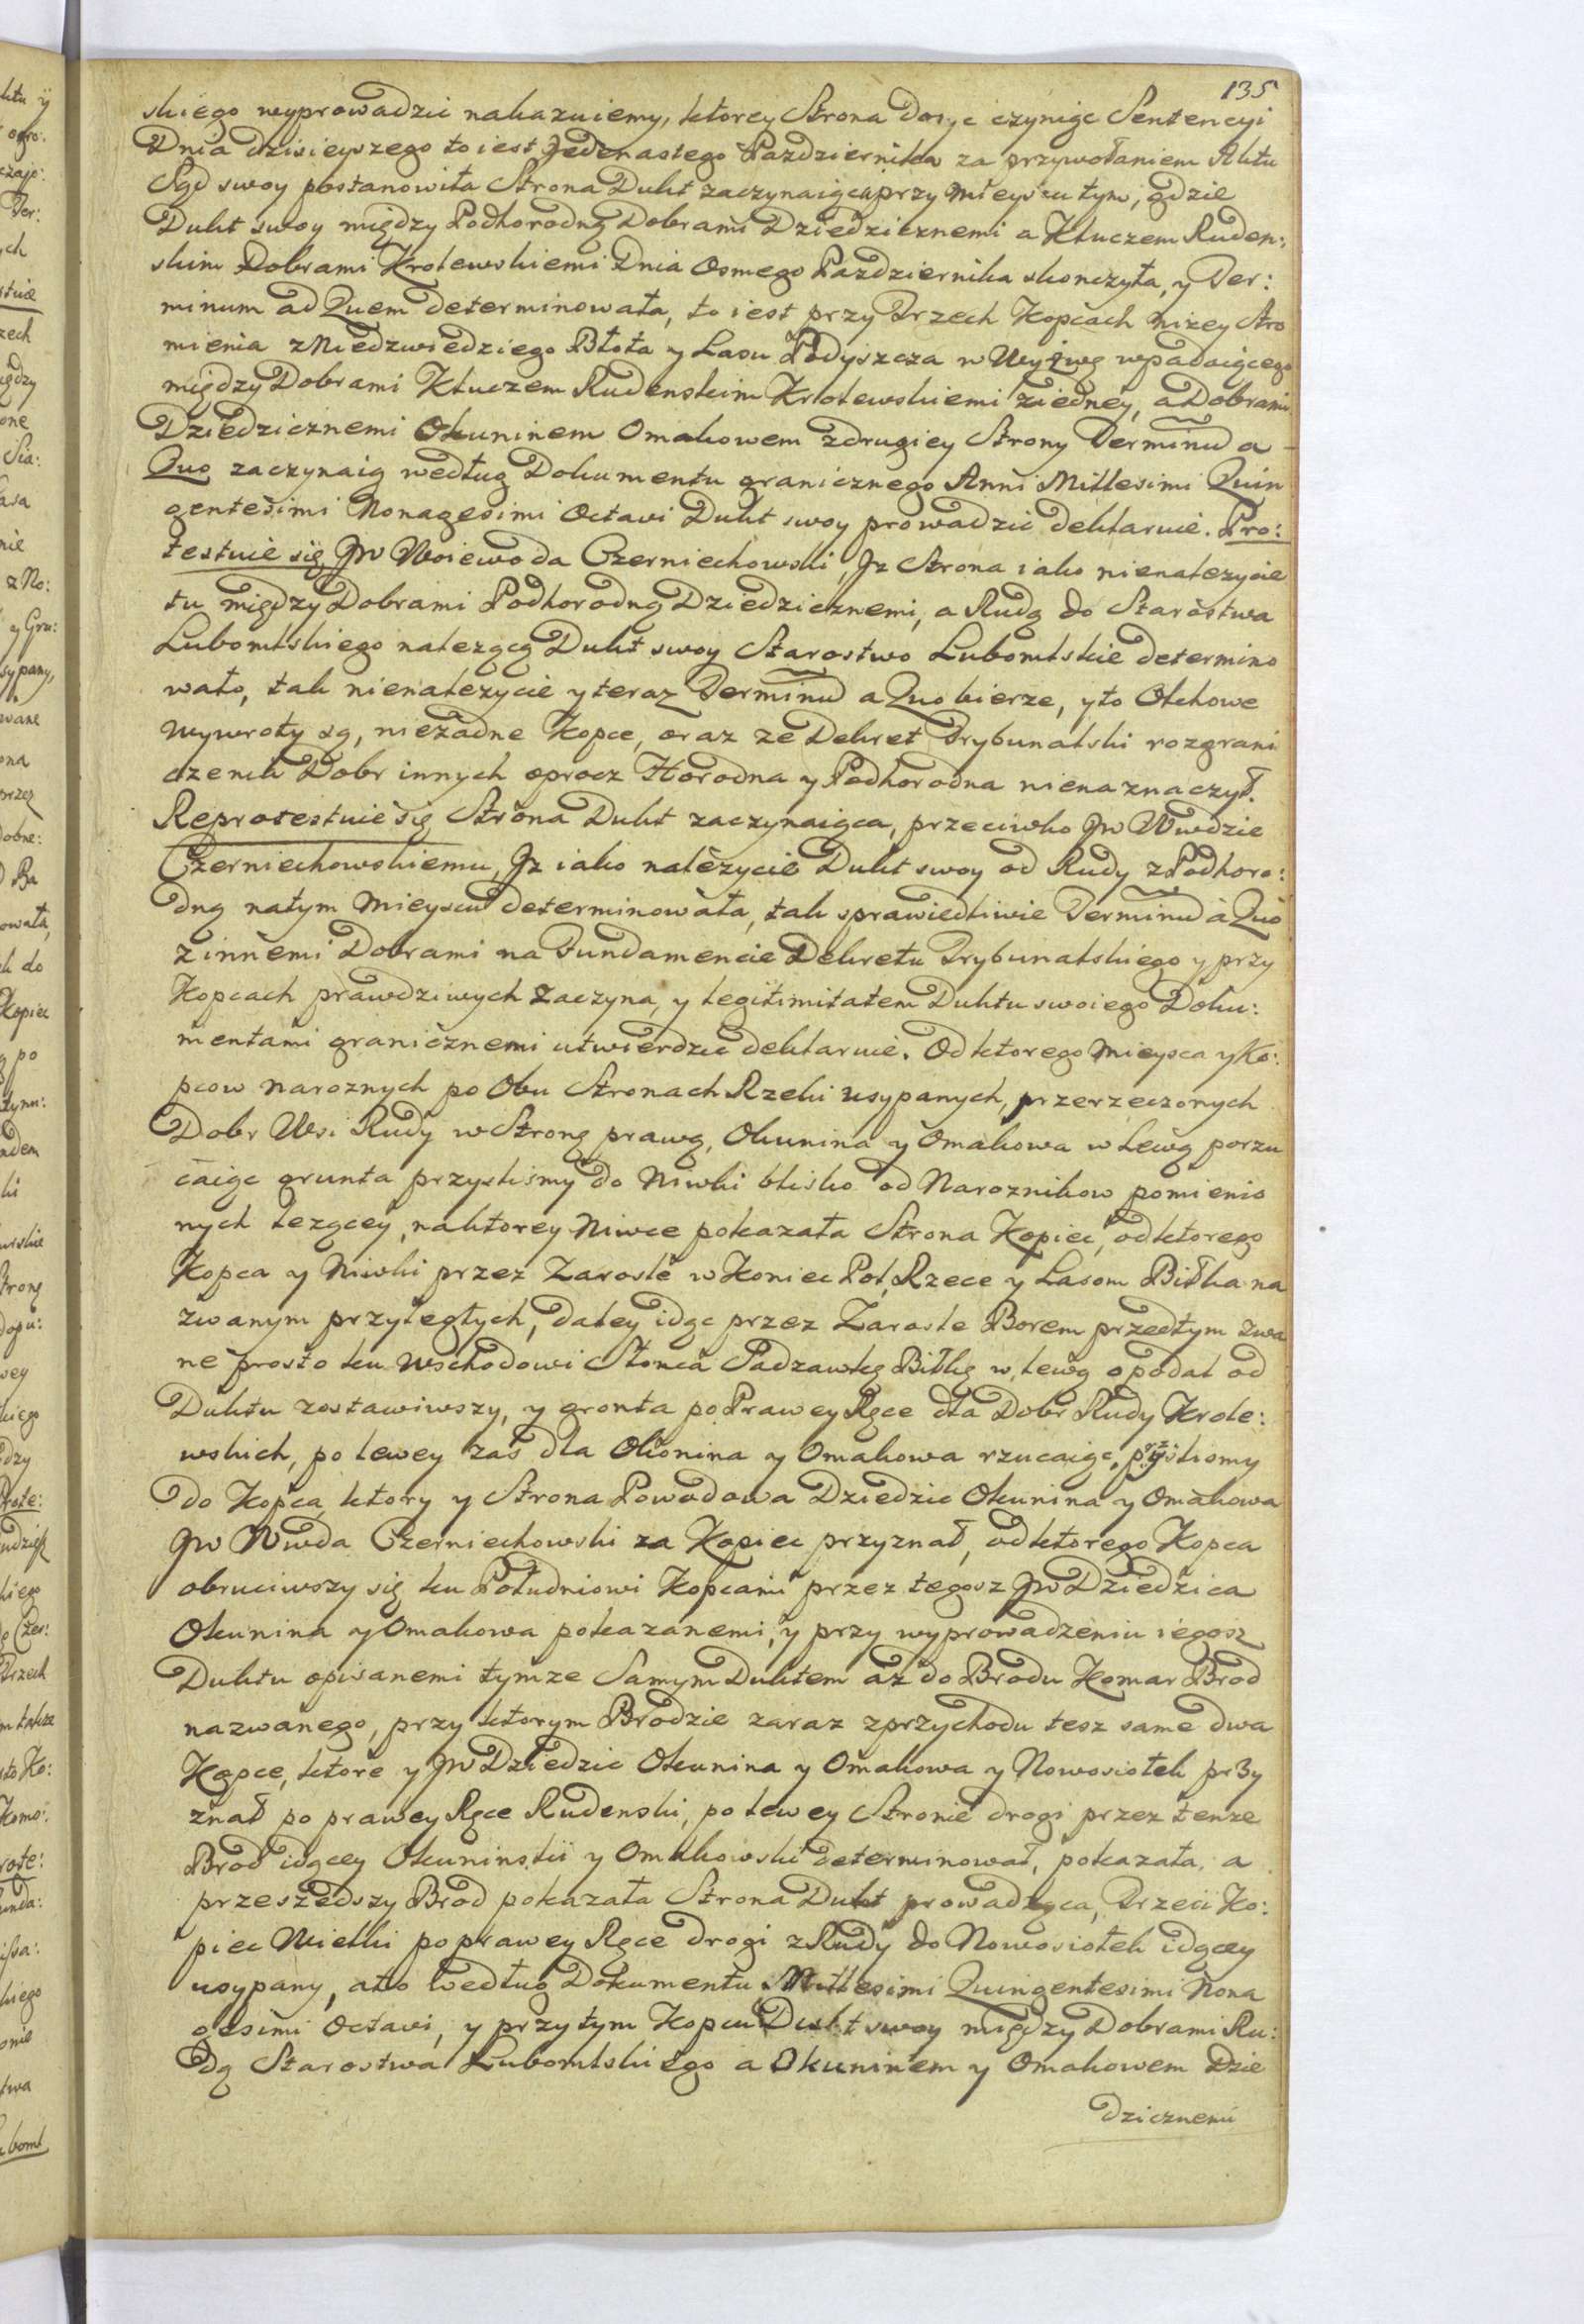 135
skiego wyprowadzic nakazuiemy, ktorey Strona dosyc czyniąc Sentencyi
Dnia dzisieyszego to iest Jedenastego Pazdziernika za przywołaniem Aktu
Sąd swoy postanowiła Strona Dukt zaczynaiąca przy Mieyscu tym, gdzie
Dukt swoy między Podhorodną Dobrami Dziedzicznemi a Kluczem Ruden:
skim Dobrami Krolewskiemi Dnia Osmego Pazdziernika skonczyła, y Ter:
minum ad Quem determinowała, to iest przy Trzech Kopcach nizey Stro
mienia z Niedzwiedziego Błota y Lasu Podyszcza w Wyzwę wpadaiącego
między Dobrami Kluczem Rudenskim Krolewskiemi ziedney, a Dobrami
Dziedzicznemi Okuninem Omakowem zdrugiey Strony Terminu a
Quo zaczynaią według Dokumentu granicznego Anni Millesimi Quin
gentesimi Nonagesimi Octavi Dukt swoy prowadzic deklaruie. Pro:
testuie się JW Woiewoda Czerniechowski, Jz Strona iako nienalezycie
tu między Dobrami Podhorodną Dziedzicznemi, a Rudą do Starostwa
Lubomlskiego nalezącą Dukt swoy Starostwo Lubomlskie determino
wało, tak nienalezycie y teraz Terminu a Quo bierze, y to Olchowe
wywroty są, niezadne Kopce, oraz ze Dekret Trybunalski rozgrani
czenia Dobr innych oprocz Horodna y Podhorodna nienaznaczył.
Reprotestuie się Strona Dukt zaczynaiąca, przeciwko JW Wwdzie
Czerniechowskiemu, Jz iako nalezycie Dukt swoy od Rudy z Podhoro:
dną natym Mieyscu determinowała, tak sprawiedliwie Terminu a Quo
z innemi Dobrami na Fundamencie Dekretu Trybunalskiego y przy
Kopcach prawdziwych zaczyna, y legitimitatem Duktu swoiego Doku:
mentami granicznemi utwierdzic deklaruie. Od ktorego Mieysca y Ko:
pcow naroznych po Obu Stronach Rzeki usypanych, przerzeczonych
Dobr Wsi Rudy w Stronę prawą, Okunina y Omakowa w Lewą porzu
caiąc grunta przysliśmy do Niwki blisko od Naroznikow pomienio
nych lezącey, naktorey Niwce pokazała Strona Kopiec, od ktorego
Kopca y Niwki przez Zarosle w Koniec Pol, Rzece y Lasom Biłka na
zwanym przyległych, daley idąc przez Zarosle Borem przedtym zwa
ne prosto ku Wschodowi Słonca Sadzawkę Biłkę w lewą opodal od
Duktu zostawiwszy, y gronta po Prawey Ręce dla Dobr Rudy Krole:
wskich, po lewey zaś dla Okonina y Omakowa rzucaiąc, przyśliomy
do Kopca, ktory y Strona Powodowa Dziedzic Okunina y Omakowa
JW Wwda Czerniechowski za Kopiec przyznał, od ktorego Kopca
obruciwszy się ku Południowi Kopcami przez tegosz JW Dziedzica
Okunina y Omakowa pokazanemi, y przy wyprowadzeniu iegosz
Duktu opisanemi tymze Samym Duktem az do Brodu Komar Brod
nazwanego, przy ktorym Brodzie zaraz zprzychodu tesz same dwa
Kopce, ktore y JW Dziedzic Okunina y Omakowa y Nowosiołek przy
znał po prawey Ręce Rudenski, po lewey Stronie drogi przez tenze
Brod idącey Okuninskii y Omakowski determinował, pokazała, a
przeszedszy Brod pokazała Strona Dukt prowadząca, Trzeci Ko:
piec Wielki po prawey Ręce drogi z Rudy do Nowosiołek idącey
usypany, a to według Dokumentu Millesimi Quingentesimi Nona
gesimi Octavi, y przytym Kopcu Dukt swoy między Dobrami Ru:
dą Starostwa Lubomlskiego a Okuninem y Omakowem Dzie
dzicznemi